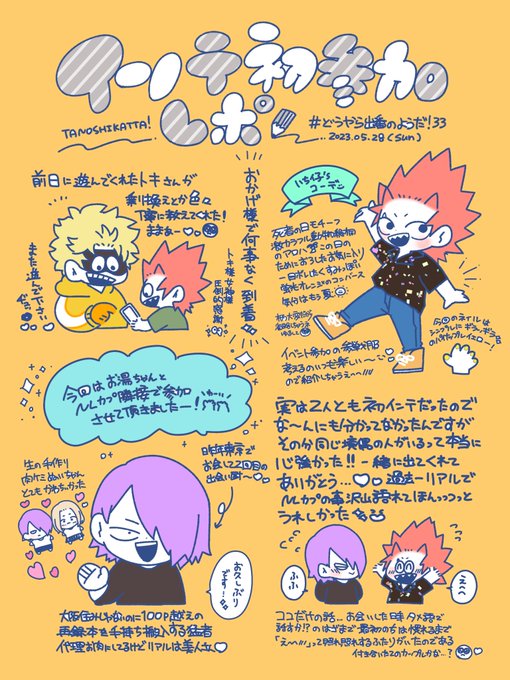 インテ初参加
レポ
TANOSHIKATTA!
#どうやら出番のようだ!33
2023.05.28(sun)
前日に遊んでくれたトキさんが
乗り換えとか色々
丁寧に教えてくれた!
ままぁー
また遊んで下さい
おかげ様で何事なく到着
トキ様女神様
圧倒的感謝
コーデ
死者の日モチーフ
のアロハ この日の
ためにおろしたお気にトリ
のコンバース
気分はもう夏
イベント参加の参戦服
考えるのいつも楽しい〜
ので紹介しちゃえ〜
今回のネイルは
シンプルにギラギラの
イエロー!
今回はお湯ちゃんと
ルカプ隣接で参加
させて頂きましたー!
昨年東京で
お会いして2回目の
出会い
生の手作り
ぬいちゃん
とてもかわちかった
お久しぶり
です!
大阪住みじゃないのに100p越えの
再録本を手持ち搬入する猛者
代理お肉にしてるけどリアルは美人さん
実は2人とも初インテだったので
な〜んにも分かってなかったんですが
その分同じ境遇の人がいるって本当に
心強かった!!一緒に出てくれて
ありがとう…過去一リアルで
ルカプの事沢山語れてほんっっっと
うれしかった
ふふ
えへ
ココだけの話…お会いした時タメ語で
話すか!?のはざまで最初のうちは慣れるまで
「え〜///」って照れ照れするふたりがいたのである
付き合いたてのカップルかな…?